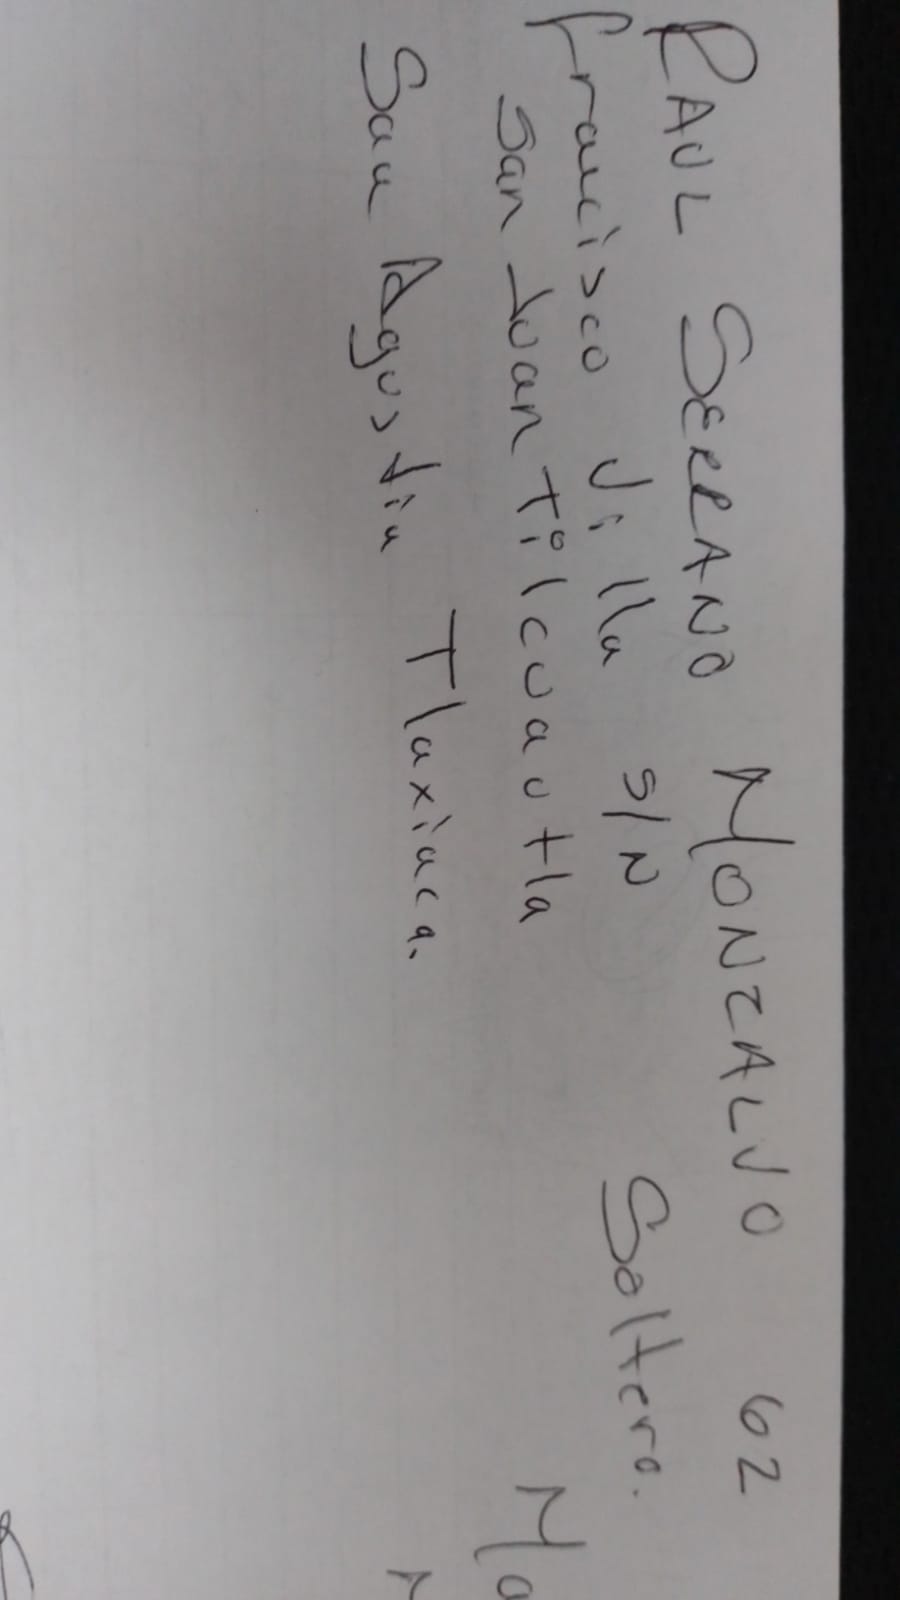 RAUL SERRANO MONZALVO 62
Francisco Villa S/N Soltero.
San Juan Tilcuautla Ma
San Agustin Tlaxiaca.